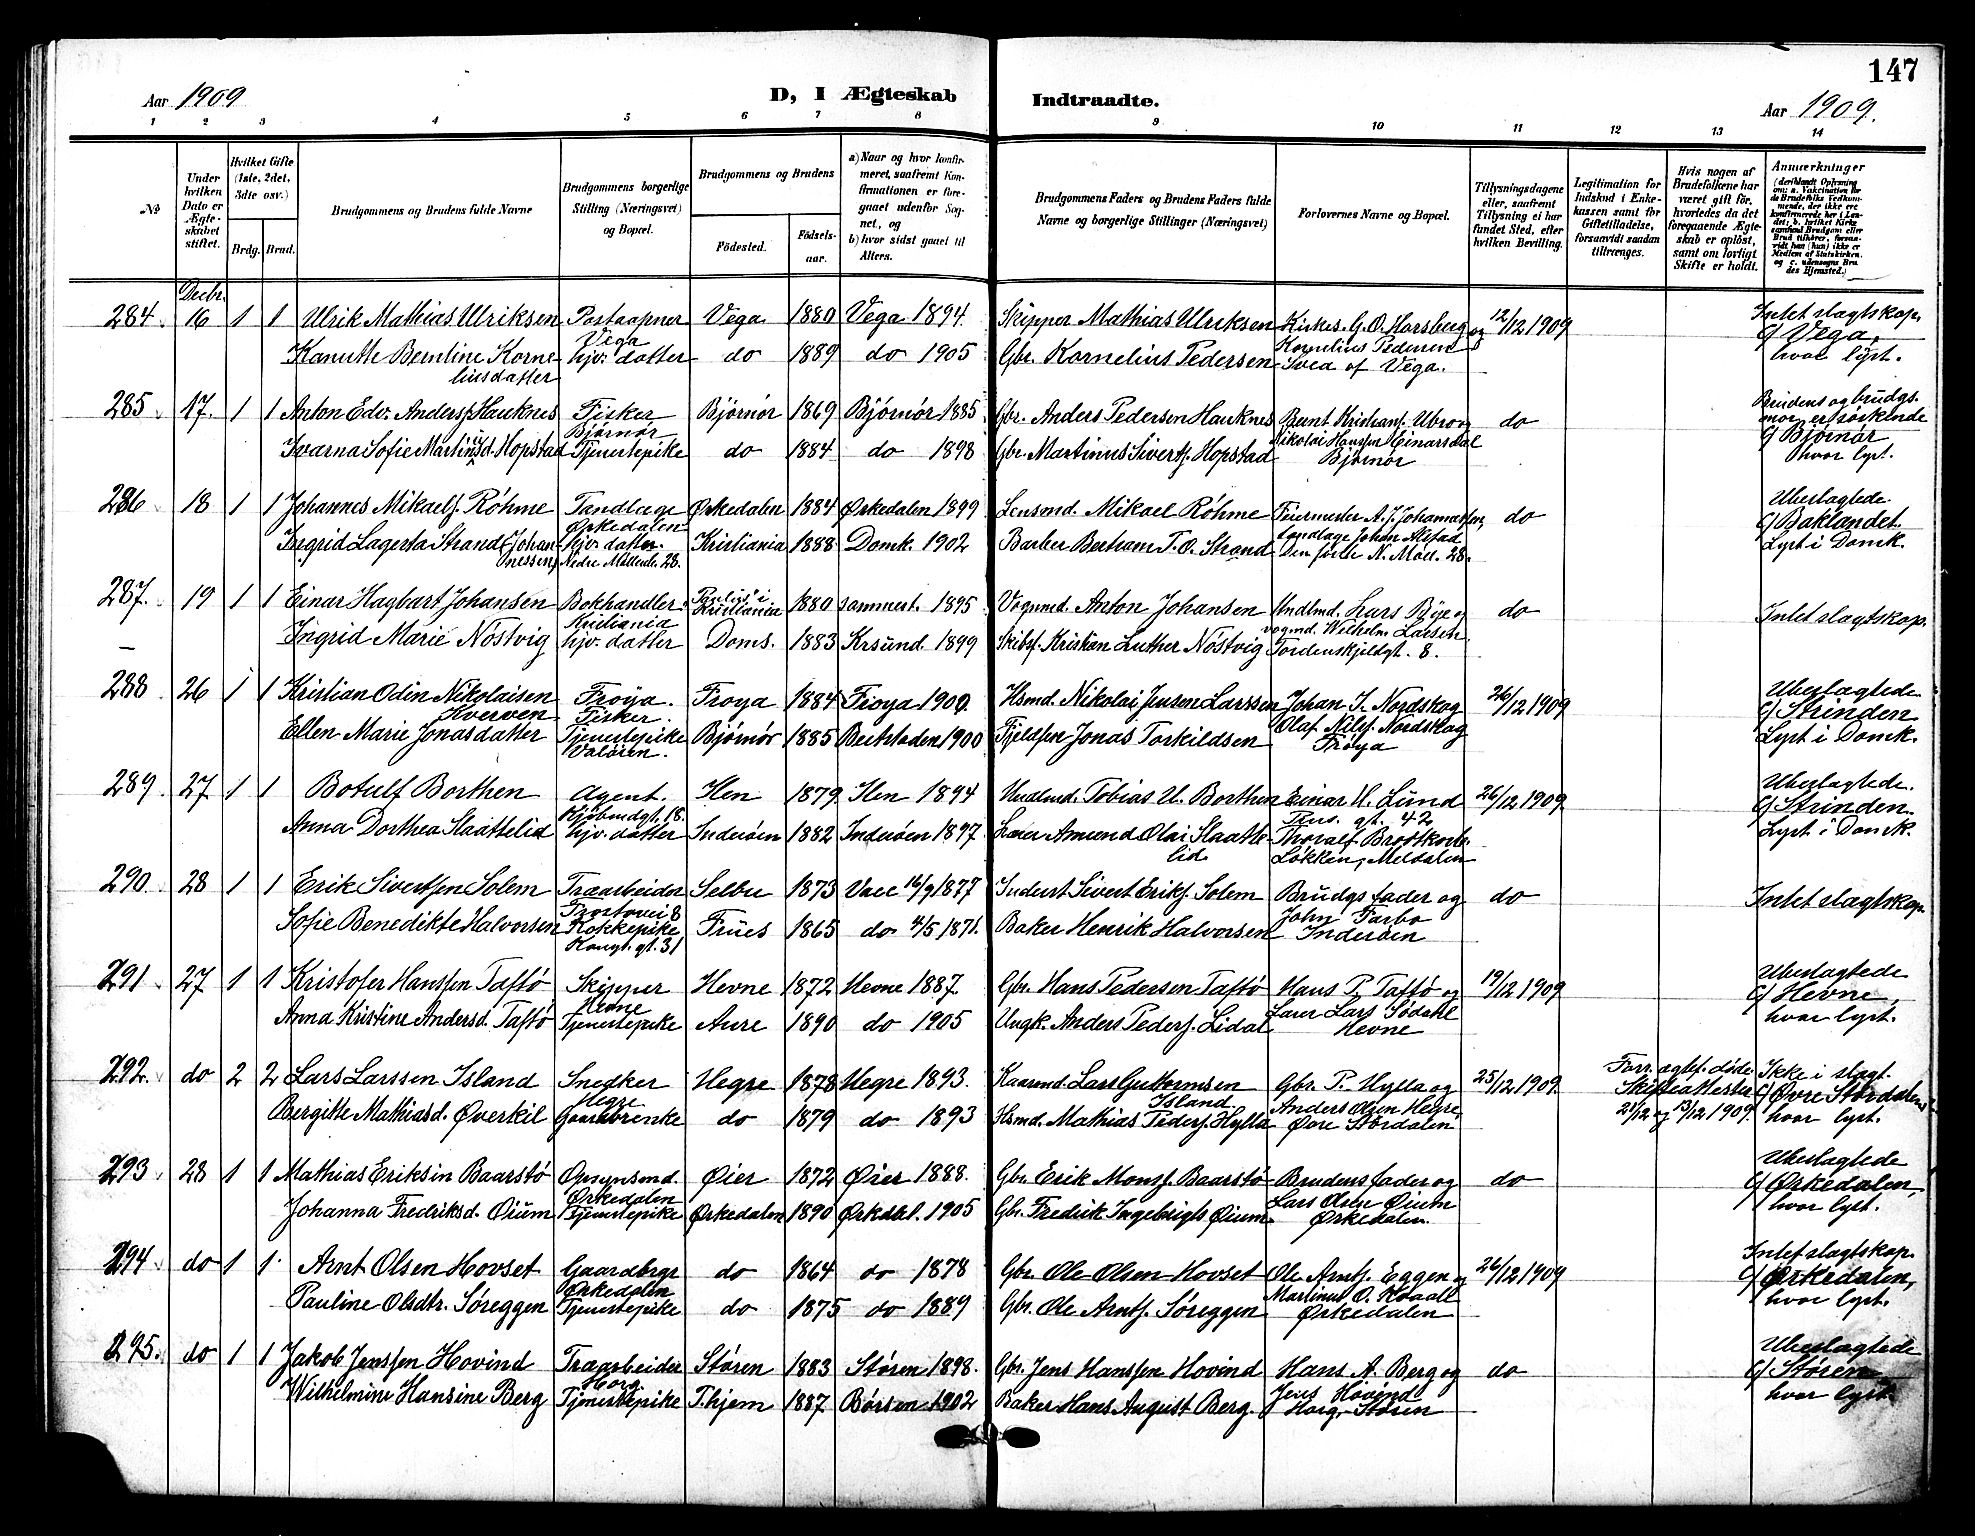 147
Aar 1909
D, I Ægteskab Indtraadte.
Aar 1909.
1 2 3 4 5 6 7 8 9 10 11 12 13 14
№
Under hvilken Dato er Ægteskabet stiftet.
Hvilket Gifte (1ste, 2det, 3die osv.)
Brdg. Brud.
Brudgommens og Brudens fulde Navne
Brudgommens borgerlige Stilling (Næringsvei) og Bopæl.
Brudgommens og Brudens
Fødested.
Fødselsaar.
a) Naar og hvor konfirmeret, saafremt Konfirmationen er foregaaet udenfor Sognet, og
b) hvor sidst gaaet til Alters.
Brudgommens Faders og Brudens Faders fulde Navne og borgerlige Stillinger (Næringsvei)
Forlovernes Navne og Bopæl.
Tillysningsdagene eller, saafremt Tillysning ei har fundet Sted, efter hvilken Bevilling.
Legitimation for Indskud i Enkekassen samt for Giftetilladelse, forsaavidt saadan tiltrænges.
Hvis nogen af Brudefolkene har været gift før, hvorledes da det foregaaende Ægteskab er opløst, samt om lovligt Skifte er holdt.
Anmærkninger
Decbr.
284 16 1 1 Ulrik Mathias Ulriksen Postaapner Vega 1880 Vega 1894. Skipper Mathias Ulriksen Kirkes. G. O. Horsberg og 12/12 1909 Intet slagtskap.
Vega Kornelius Pedersen c/ Vega,
Kanutte Berntine Korneliusdatter hjv. datter do 1889 do 1905 Gbr. Kornelius Pedersen Svea af Vega. hvor lyst.
285 17. 1 1 Anton Edv. Anders. Hauknes Fisker Bjørnør 1869 Bjørnør 1885 Gbr. Anders Pedersen Hauknes Bernt Kristians. Ubro og do Brudens og brudgs. mor er søskende
Bjørnør Nikolai Hanssen Einarsdal c/ Bjørnør
Ivarna Sofie Martinusd. Hopstad Tjenestepike do 1884 do 1898 Gbr. Martinus Siverts. Hopstad Bjørnør hvor lyst.
286 18 1 1 Johannes Mikaels. Røhme Tandlæge Ørkedalen 1884 Ørkedalen 1899 Lensmd. Mikael Røhme Feiermester A. J. Johannessen, do Ubeslagtede.
Ørkedalen tandlæge Johan Alstad c/ Baklandet.
Ingrid Lagerta Strand (Johannessen) hjv. datter. Kristiania 1888 Domk. 1902 Barber Bertram T. O. Strand Den første N. Møll. 28. Lyst i Domk.
Nedre Møllenb. 28.
287. 19 1 1 Einar Hagbart Johansen Bokhandler. Paulus' i Kristiania 1880 sammest. 1895 Vognmd. Anton Johansen Hndlmd. Lars Bye og do Intet slagtskap.
Kristiania vognmd. Wilhelm Larsen.
Ingrid Marie Nøstvig hjv. datter Doms. 1883 Krsund. 1899 Skibsf. Kristian Luther Nøstvig Tordenskjoldgt. 8.
288 26 1 1 Kristian Odin Nikolaisen Kverven Frøya. Fisker. Frøya 1884 Frøya 1900. Hsmd. Nikolai Jensen Larssen Johan I. Nordskog 26/12 1909 Ubeslagtede
Olaf Nilss. Nordskog c/ Strinden
Ellen Marie Jonasdatter Tjenestepike Bjørnør 1885 Beitstaden 1900 Jonas Torkildsen Frøya Lyst i Domk.
289. 27 1 1 Botulf Borthen Agent. Hen 1879 Hen 1894 Hndlmd. Tobias U. Borthen Einar U. Lund 26/12 1909. Ubeslagtede.
Kjøbmdgt. 18. gt. 42 c/ Strinden.
Anna Dorthea Slaattelid hjv. datter Inderøen 1882 Inderøen 1897. Lærer Amund Olai Slaattelid Thoralf Brodtkorb. Løkken, Meldalen Lyst i Domk.
290. 28 1 1 Erik Sivertsen Solem Træarbeider Selbu 1873 Vacc 16/9 1877 Inderst Sivert Eriks. Solem Brudgs fader og do Intet slagtskap.
John Farbo
Sofie Benedikte Halvorsen Kokkepike Frues 1865 do 4/5 1871. Baker Henrik Halvorsen Inderøen
Kongt. gt. 31
291 27 1 1 Kristofer Hanssen Taftø Skipper Hevne 1872 Hevne 1887. Gbr. Hans Pedersen Taftø Hans P. Taftø og 19/12 1909 Ubeslagtede
Hevne Lars Sødahl c/ Hevne,
Anna Kristine Andersd. Taftø Tjenestepike Aure 1890 do 1905 Ungk. Anders Peders. Lidal Hevne hvor lyst.
292. do 2 2 Lars Larssen Island Snedker Hegre 1878 Hegre 1893. Kaarmd. Lars Guttormsen Island Gbr. P. Hylla og 25/12 1909. Forr. ægtef. døde. Ikke i slagt.
Hegre Anders Olsen Hegre, Skifteattester c/ Øvre Stordalen
Bergitte Mathiasd. Øverkil Gaardbrenke do 1879 do 1893 Hsmd. Mathias Peders. Hylla Øvre Stordalen 21/12 og 13/12 1909. hvor lyst.
293 28 1 1 Mathias Eriksen Baarstø Opsynsmd. Øier 1872 Øier 1888. Gbr. Erik Mons. Baarstø Brudens fader og do Ubeslagtede
Ørkedalen Lars Olsen Øium c/ Ørkedalen,
Johanna Fredriksd. Øium Tjenestepike Ørkedalen 1890 Ørkdal. 1905 Gbr. Fredrik Ingebrigts Øium. Ørkedalen. hvor lyst.
294 do 1 1 Arnt Olsen Hovset Gaardbrgr do 1864 do 1878 Gbr. Ole Olsen Hovset Ole Arnts. Eggen og 26/12 1909 Intet slagtskap.
Ørkedalen Martinus O. Kvaale c/ Ørkedalen,
Pauline Olsdtr. Søreggen Tjenestepike do 1875 do 1889 Gbr. Ole Arnts. Søreggen Ørkedalen hvor lyst.
295. do 1 1 Jakob Jenssen Hovind Træarbeider Støren 1883 Støren 1898. Gbr. Jens Hanssen Hovind Hans A. Berg og do Ubeslagtede
Horg Jens Hovind c/ Støren
Wilhelmine Hansine Berg Tjenestepike T.hjem 1887. Børsen 1902 Baker Hans August Berg. Horg, Støren hvor lyst.